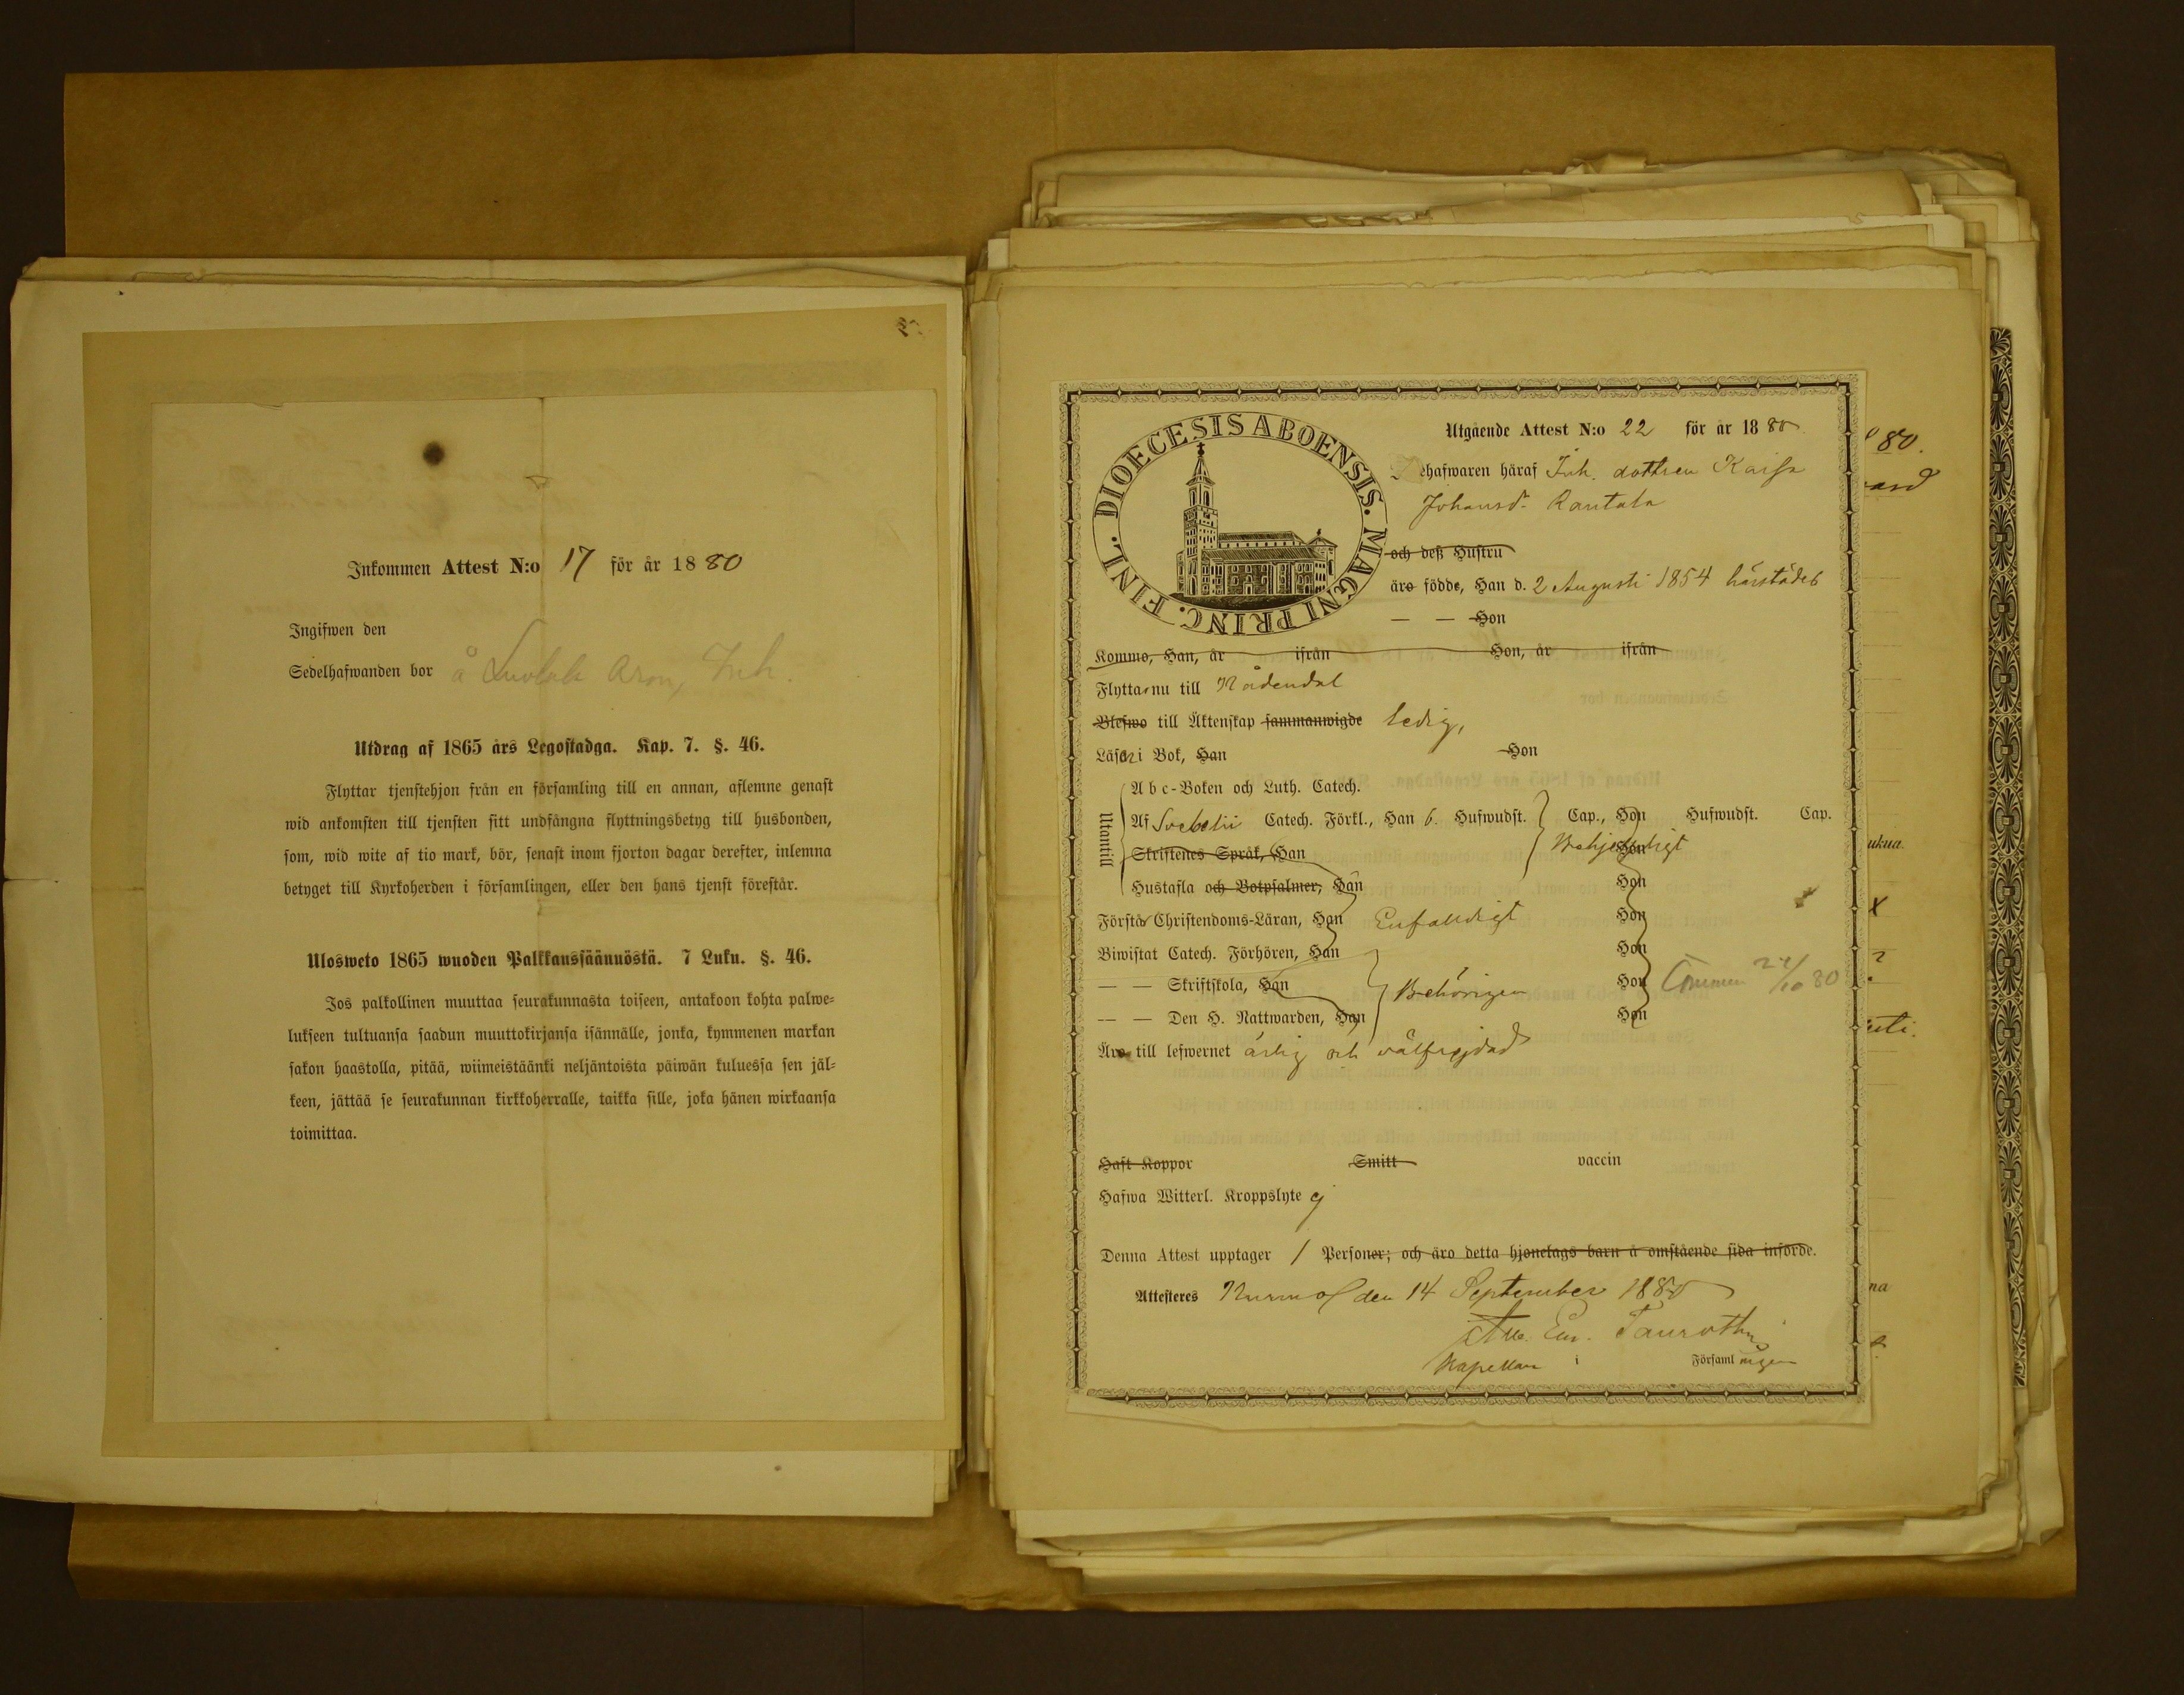 Inkommen Attest N:o 17 för år 1880
Ingifwen den
Sedelhafwanden bor å Luolala Aron, Inh.
Utdrag af 1865 års Legostadga. Kap. 7. §. 46.
Flyttar tjenstehjon från en församling till en annan, aflemne genast
wid ankomsten till tjensten sitt undfångna flyttningsbetyg till husbonden,
som, wid wite af tio mark, bör, senast inom fjorton dagar derefter, inlemna
betyget till Kyrkoherden i församlingen, eller den hans tjenst förestår.
Ulosweto 1865 wuoden Palkkaussäännöstä. 7 Luku. §. 46.
Jos palkollinen muuttaa seurakunnasta toiseen, antakoon kohta palwe=
lukseen tultuansa saadun muuttokirjansa isännälle, jonka, kymmenen markan
sakon haastolla, pitää, wiimeistäänki neljäntoista päiwän kuluessa sen jäl=
keen, jättää se seurakunnan kirkkoherralle, taikka sille, joka hänen wirkaansa
toimittaa.
DIOECESIS ABOENSIS. MAGNI PRINC. FINL.
Utgående Attest N:o 22 för år 1880
ehafwaren häraf Inh. dottren Kaisa
Johansd. Rantala
och deß Hustru
äro födde, Han d. 2 Augusti 1854 härstädes
— — Hon
Kommo, Han, år ifrån Hon, år ifrån
Flytta nu till Nådendal
Blefwo till Äktenskap sammanwigde ledig,
Läser i Bok, Han Hon
Utantill
Abc-Boken och Luth. Catech.
Af Svebelii Catech. Förkl., Han 6. Hufwudst. Cap., Hon Hufwudst. Cap.
Skriftenes Språk, Han Behjelpligt Hon
Hustafla och Botpsalmer, Han Hon
Förstår Christendoms-Läran, Han Enfaldigt Hon
Biwistat Catech. Förhören, Han Hon
— — Skriftskola, Han Behörigen Hon 80
— — Den H. Nattwarden, Han Hon
Äro till lefwernet ärlig och välfrejdad
Haft Koppor Smitt vaccin
Hafwa Witterl. Kroppslyte ej
Denna Attest upptager 1 Personer; och äro detta hjonelags barn å omstående sida införde.
Attesteras den 14 September 1880
Kapellan i Församlingen
80.
ukua.